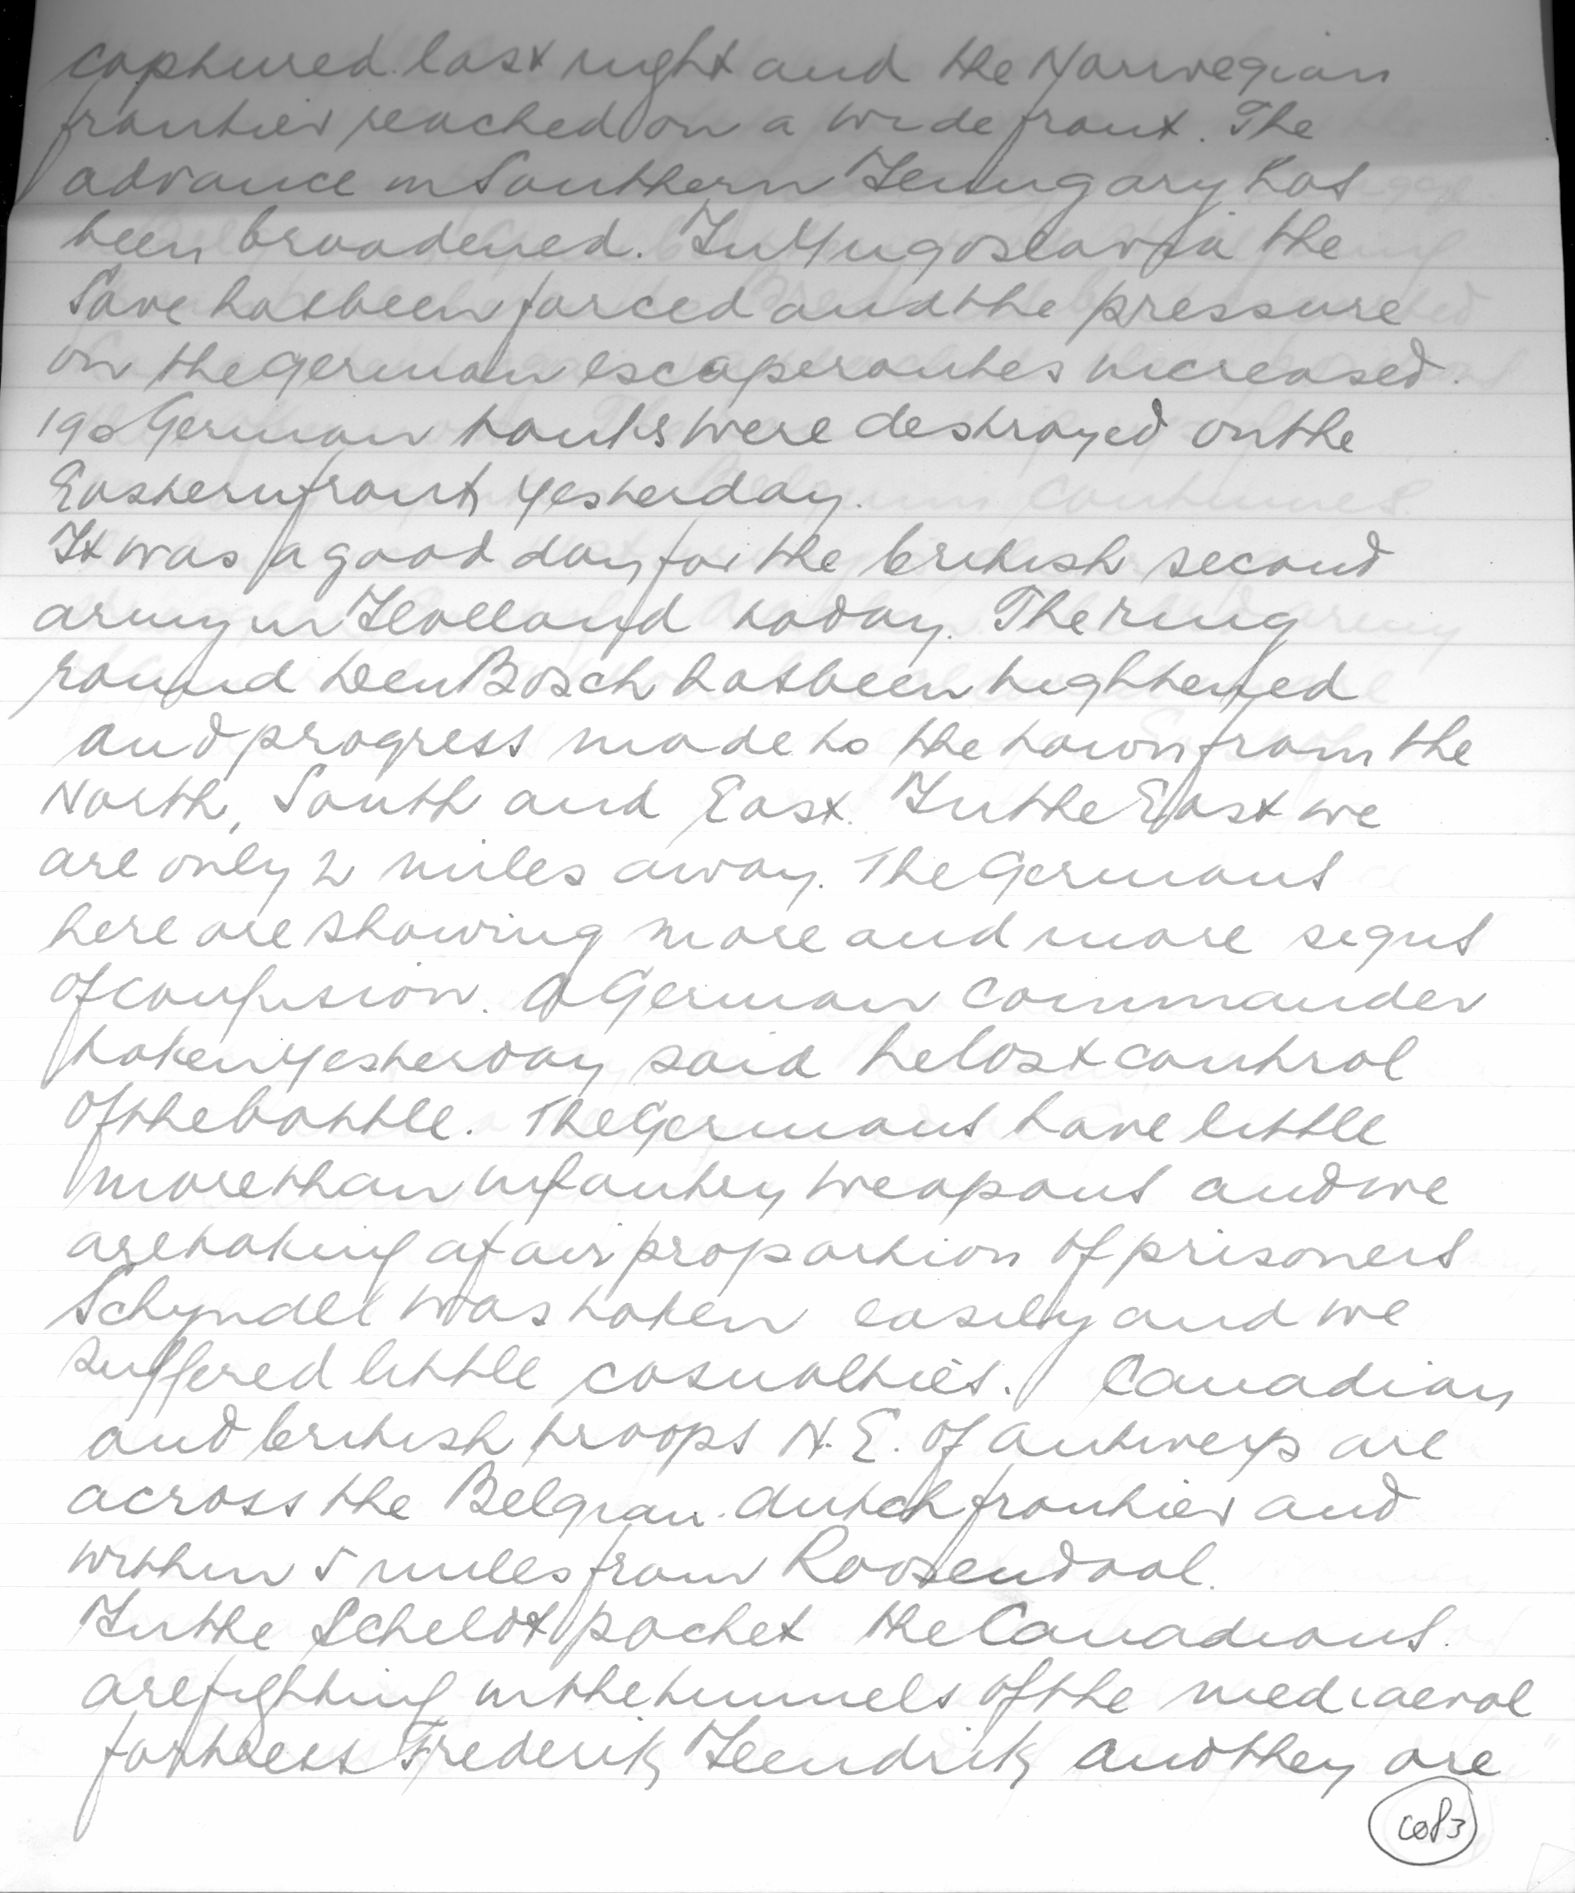 captured last night and the Norwegian
frontier reached on a wide front. The
advance in Southern Hungary has
been broadened. In Yugoslavia the
Save has been forced and the pressure
on the German escaperoutes increased.
190 German tanks were destroyed on the
Eastern front yesterday.
It was a good day for the british second
army in Holland today. The ring
round Den Bosch has been tightened
and progress made to the town from the
North, South and East. In the East we
are only 2 miles away. The Germans
here are showing more and more signs
of confusion. A German commander
taken yesterday said he lost control
of the battle. The Germans have little
more than infantry weapons and we
are taking a fair proportion of prisoners
Schyndel was taken easily and we
suffered little casualties. Canadian
and british troops N.E. of Antwerp are
across the Belgian-dutch frontier and
within 5 miles from Roosendaal.
In the Scheldt pocket the Canadians
are fighting in the tunnels of the mediaeval
fortress Frederik Hendrik and they are